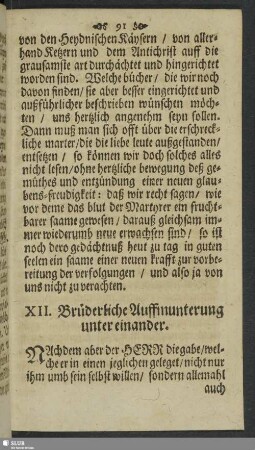 91
von den Heydnischen Käysern / von aller-
hand Ketzern und dem Antichrist auff die
grausamste art durchächtet und hingerichtet
worden sind. Welche bücher / die wir noch
davon finden / sie aber besser eingerichtet und
außführlicher beschrieben wünschten möch-
ten / uns hertzlich angenehm seyn sollen.
Dann muß man sich offt über die erschreck-
liche marter / die die liebe leute außgestanden /
entsetzen / so können wir doch solches alles
nicht lesen / ohne hertzliche bewegung deß ge-
müthes und entzündung einer neuen glau-
bens-freudigkeit: daß wir recht sagen / wie
vor deme das blut der Martyrer ein frucht-
barer saame gewesen / darauß gleichsam im-
mer wiederumb neue erwachsen sind / so ist
noch dero gedächtnuß heut zu tag in guten
seelen ein saame einer neuen krafft zur vorbe-
reitung der verfolgungen / und also ja von
uns nicht zu verachten.
XII. Brüderliche Auffmunterung
unter einander.
NAchdem aber der HERR die gabe / wel-
che er in einen jeglichen geleget / nicht nur
ihm umb sein selbst willen / sondern allemahl
auch
SLUB